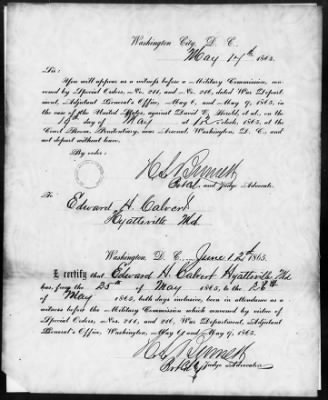 Washington City, D. C.
May 17th 1865.
Sir:
You will appear as a witness before a Military Commission, con-
vened by Special Orders, No. 211, and No. 216, dated War Depart-
ment, Adjutant General's Office, May 6, and May 9, 1865, in
the case of the United States, against David E. Herold, et al., on the
19th day of May at 10 o'clock, 1865, at the
Court Room, Penitentiary, near Arsenal, Washington, D. C., and
not depart without leave.
By order:
H L Burnett
Bvt Col. and Judge Advocate.
To
Edward H. Calvert
Hyattsville Md.
Washington, D. C., June 12th 1865.
I certify that Edward H. Calvert Hyattsville Md.
has, from the 25th of May 1865, to the 26th
of May 1865, both days inclusive, been in attendance as a
witness before the Military Commission which convened by virtue of
Special Orders, Nos. 211, and 216, War Department, Adjutant
General's Office, Washington, May 6, and May 9, 1865.
H L Burnett
Bvt Col & Judge Advocate.